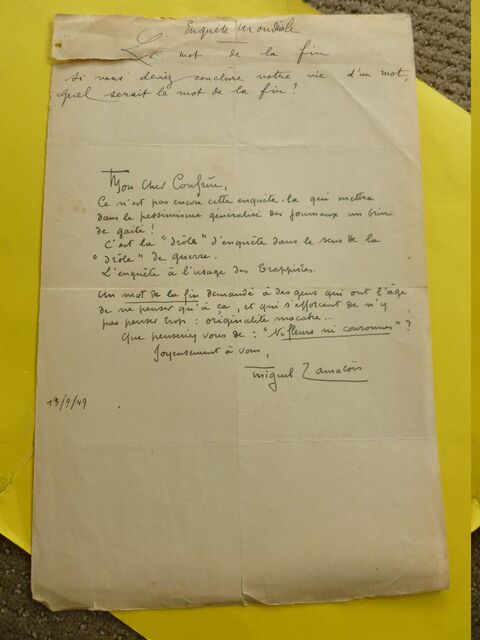 Enquête Mondiale
Le mot de la fin
Si vous deviez conclure votre vie d'un mot,
quel serait le mot de la fin ?
Mon Cher Confrère,
Ce n'est pas encore cette enquête-là qui mettra
dans le pessimisme généralisé des journaux un brin
de gaité !
C'est la "drôle" d'enquête dans le sens de la
"drôle" de guerre.
L'enquête à l'usage des Trappistes.
Un mot de la fin demandé à des gens qui ont l'âge
de ne penser qu'à ça, et qui s'efforcent de n'y
pas penser trop : originalité macabre...
Que penseriez vous de : "Ni fleurs ni couronnes" ?
Joyeusement à vous,
Miguel Zamacoïs
13/9/49